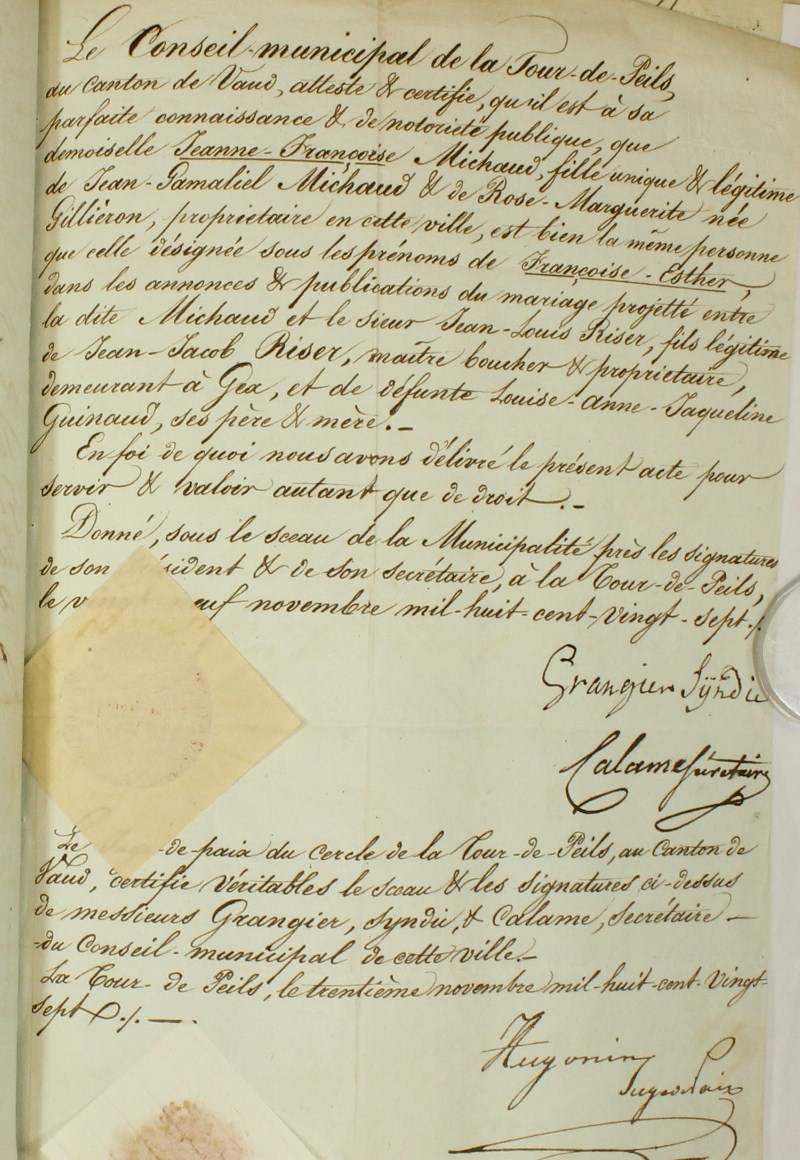 Le Conseil-municipal de la Tour-de-Peils,
au Canton de Vaud, atteste & certifie, qu'il est à sa
parfaite connaissance & de notoriété publique, que
demoiselle Jeanne-Françoise Michaud, fille unique & légitime
de Jean-Gamaliel Michaud & de Rose-Marguerite née
Gilliéron, propriétaire en cette ville, est bien la même personne
que celle désignée sous les prénoms de Françoise-Esther,
dans les annonces & publications du mariage projetté entre
la dite Michaud et le sieur Jean-Louis Riser, fils légitime
de Jean-Jacob Riser, maître boucher & propriétaire,
demeurant à Gex, et de défunte Louise-anne-Jaqueline
Guinaud, ses père & mère.-
En foi de quoi nous avons délivré le présent acte pour
servir & valoir autant que de droit.-
Donné, sous le sceau de la Municipalité près les signatures
de son ident & de son secrétaire, à la Tour-de-Peils,
le v uf novembre mil-huit-cent-vingt-sept./.
Grangier Syndic
Calame secrétaire
Le -de-paix du cercle de la Tour-de-Peils, au Canton de
Vaud, certifie véritables le sceau & les signatures ci-dessus
de messieurs Grangier, syndic, & Calame, secrétaire -
-du Conseil-municipal de cette ville.-
La Tour-de Peils, le trentième novembre mil-huit-cent-vingt-
sept./. -.
Hugonin
Juge de Paix